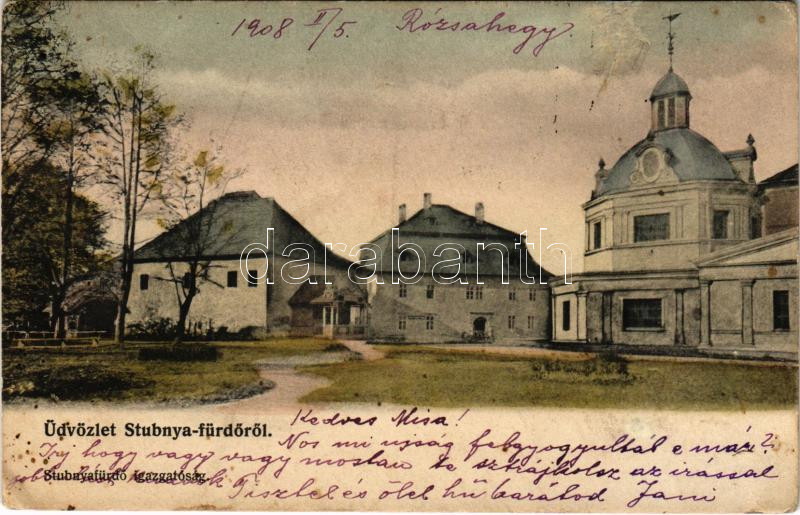 1908 II/5. Rózsahegy
darabanth
Üdvözlet Stubnya-fürdőről.
Kedves Misa!
Nos mi ujság felgyogyultál e már?
Irj hogy vagy vagy mostan te sztrajkolsz az irással
Stubnyafürdő igazgatóság.
Tisztel és ölel hü barátod Jani